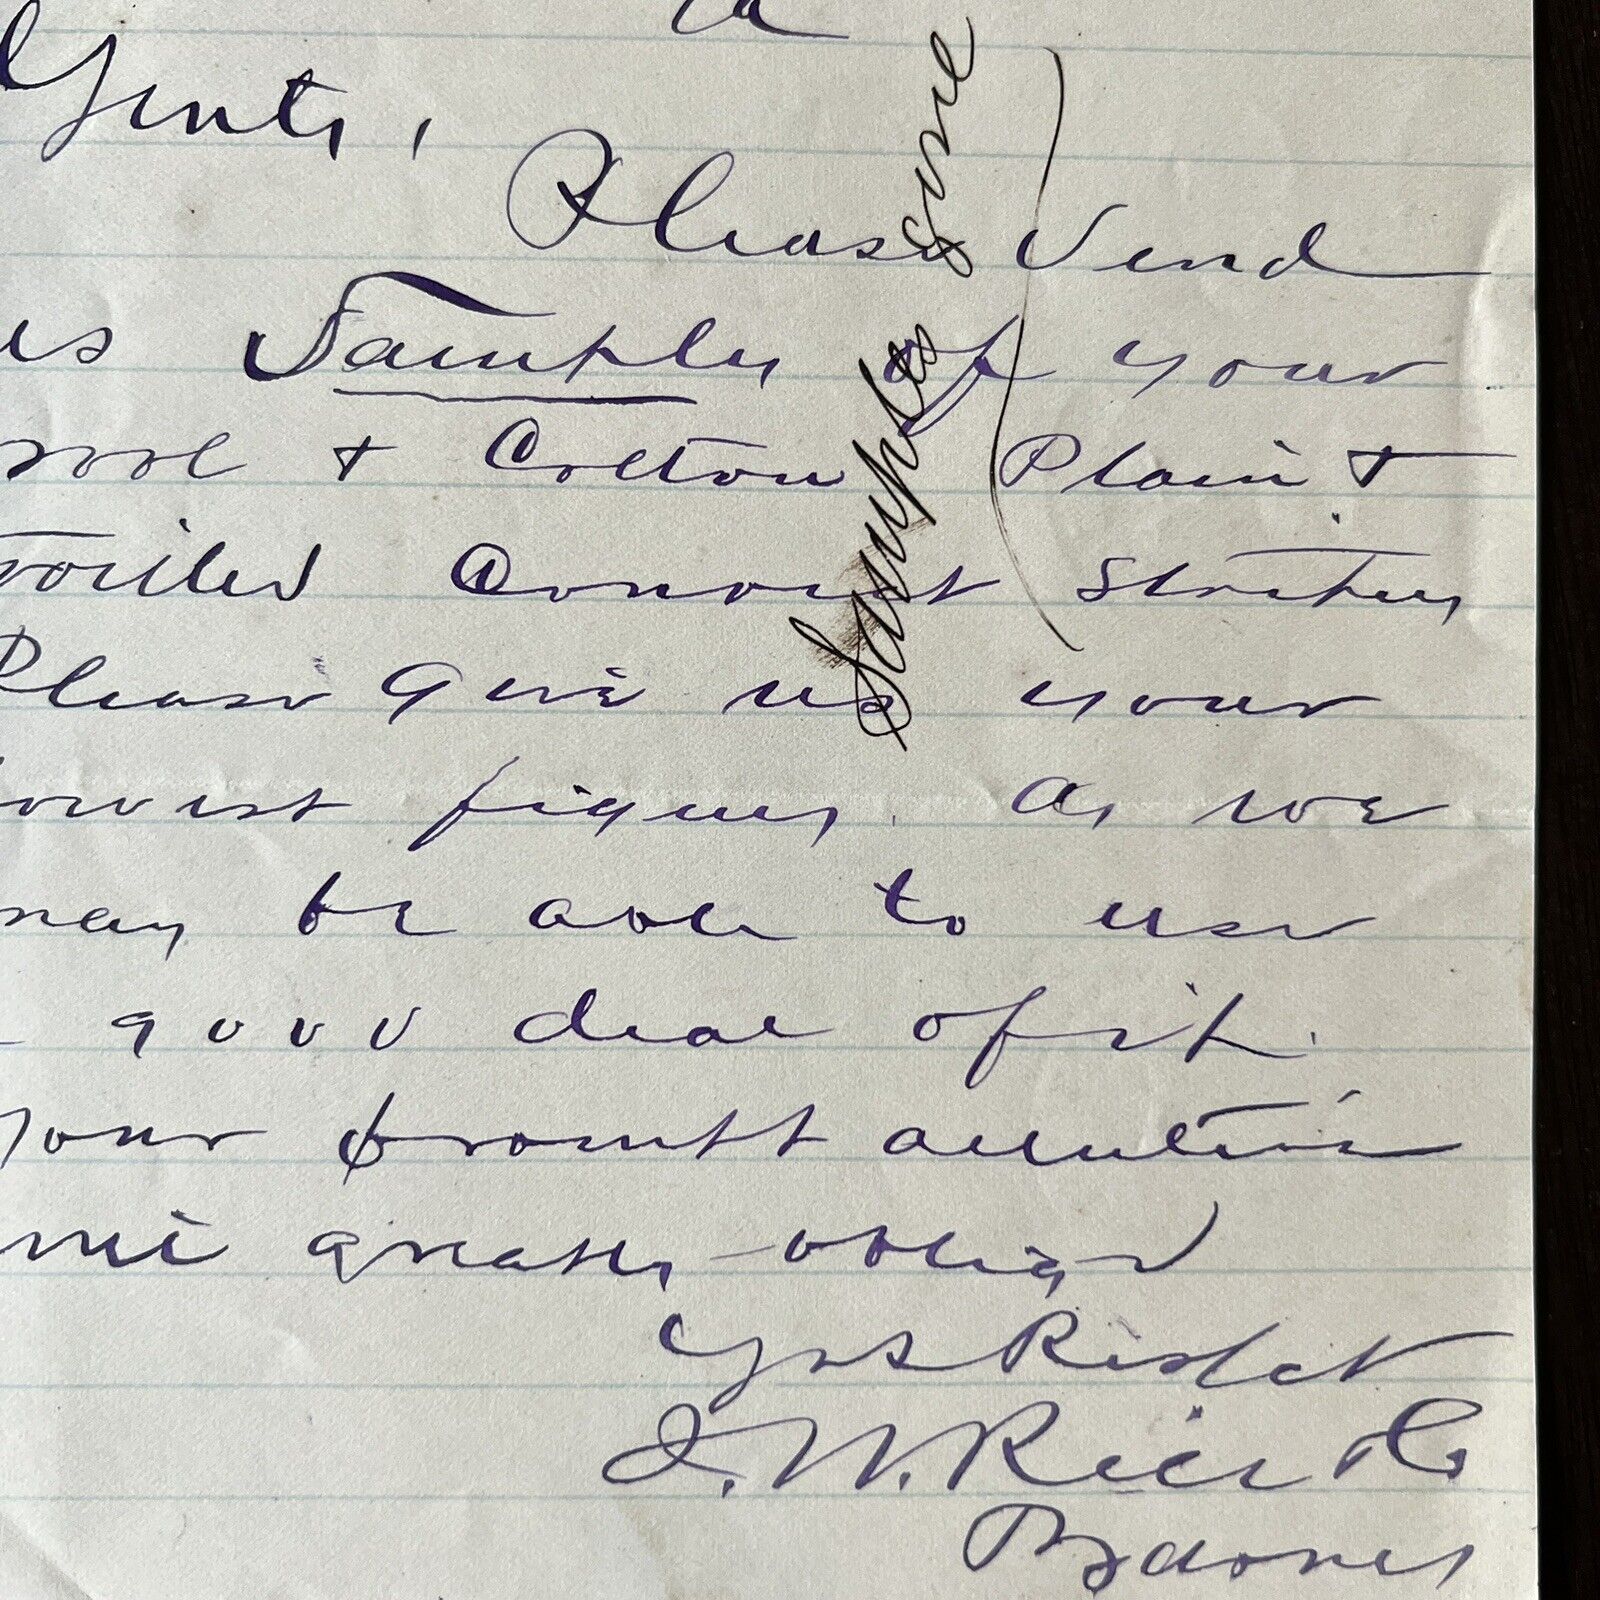 Gents,
Please Send
us Samples of your
wool & Cotton Plain &
Please give us your
lowest figures. As we
may be able to use
good deal of it.
Your prompt attention
greatly oblige
Yrs
J. W. Rice & Co
Samples sone